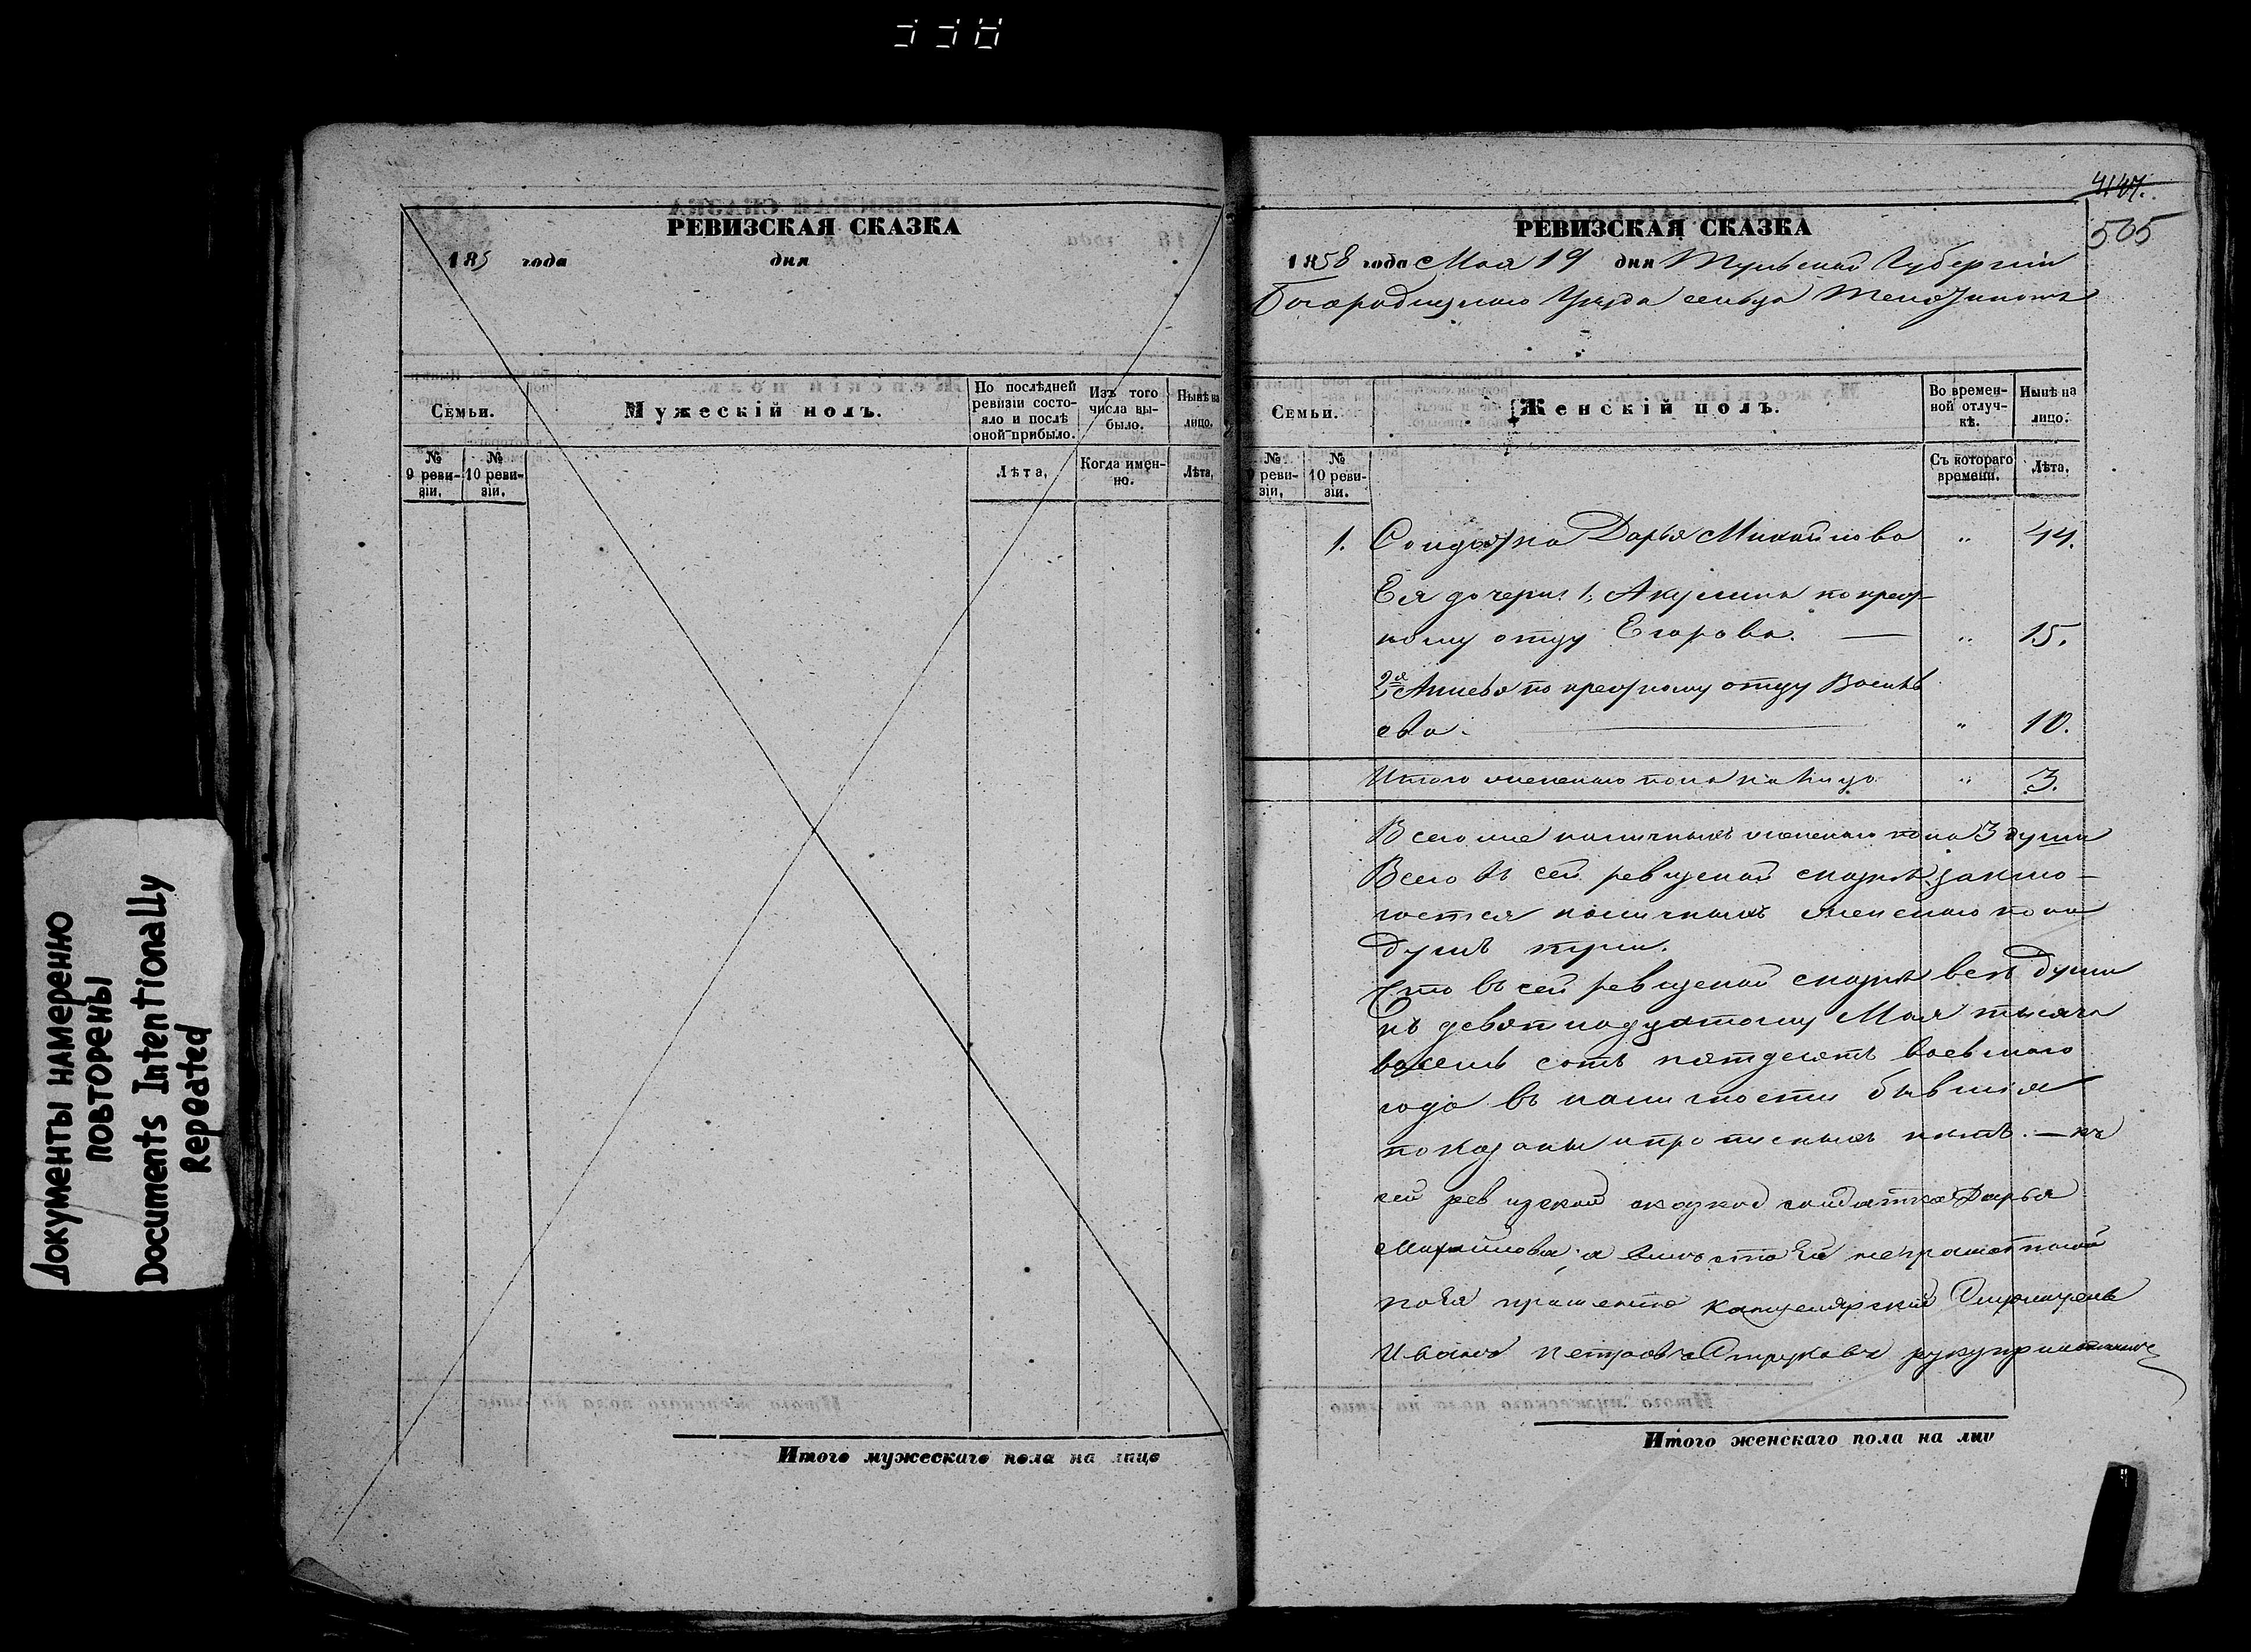 338
Документы намеренно
повторены
Documents Intentionally
Repeated
РЕВИЗСКАЯ СКАЗКА
185 года дня
Семьи.
Мужескій полъ.
По послѣдней
ревизіи состо-
яло и послѣ
оной прибыло.
Изъ того
числа вы-
было.
Нынѣ на
лицо.
№
9 реви-
зіи.
№
10 реви-
зіи.
Лѣта.
Когда имен-
но.
Лѣта.
Итого мужескаго пола на лицо
4147.
505
РЕВИЗСКАЯ СКАЗКА
1858 года Мая 19 дня Тульской Губерніи
Богородицкаго Уѣзда сельца
Семьи.
Женскій полъ.
Во времен-
ной отлуч-
кѣ.
Нынѣ на
лицо.
№
9 реви-
зіи.
№
10 реви-
зіи.
Съ котораго
времени.
Лѣта.
1. Солдатка Дарья Михайлова " 44.
Ея дочери: 1; Акулина по крест-
ному отцу Егорова. — " 15.
2я по крестному отцу Василь
ева. — " 10.
Итого женскаго пола на лицо " 3.
Всего же наличныхъ женскаго пола 3 души
Всего въ сей ревизской сказкѣ заклю-
чается наличныхъ женскаго пола
душъ три.
Что въ сей ревизской сказкѣ всѣ души
къ девятнадцатому Мая тысяча
восемь сотъ пятдесятъ восьмаго
года въ наличности бывшія
показаны и прописныхъ нѣтъ. — къ
сей ревизской сказкѣ солдатка Дарья
Михайлова, а вмѣсто Ея неграмотной
по Ея прошенію Канцелярскій Служитель
Иванъ Петровъ руку приложилъ
Итого женскаго пола на лиц